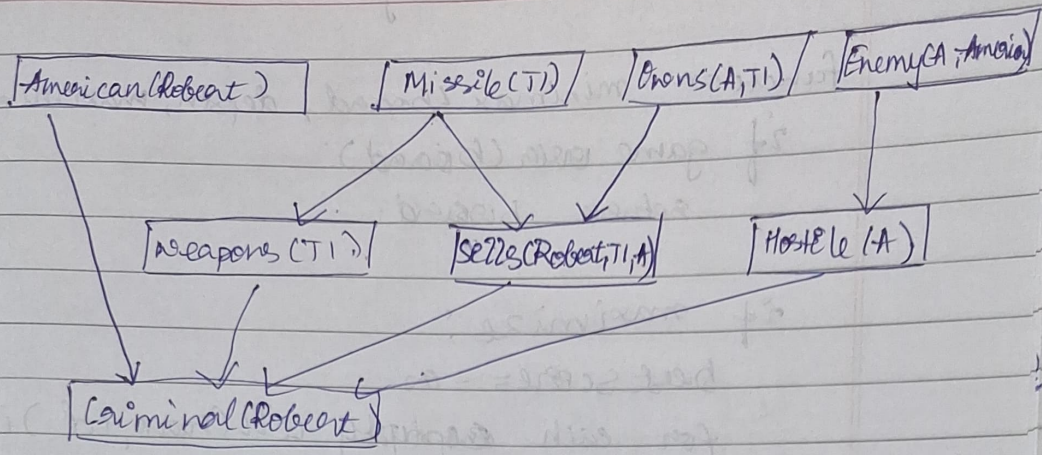 American(Robert) Missile(T1) Owns(A,T1) Enemy(A,America)
Weapons(T1) Sells(Robert,T1,A) Hostile(A)
Criminal(Robert)